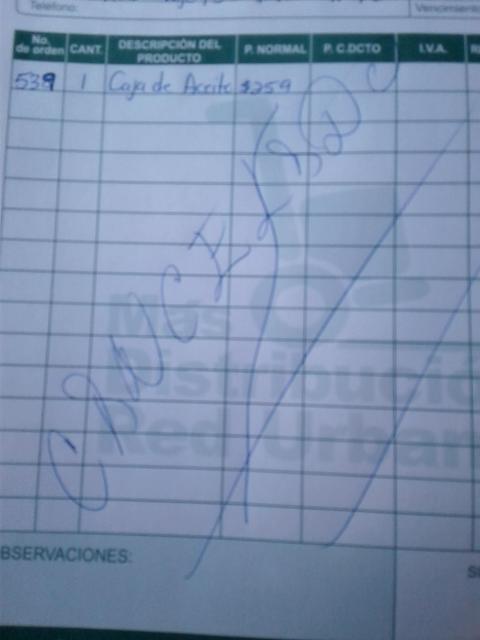 Teléfono:
Vencimiento
No. de orden CANT. DESCRIPCIÓN DEL PRODUCTO P. NORMAL P. C.DCTO I.V.A.
539 1 Caja de Aceite $259
CANCELADO
Más
Distribución
Red Urban
OBSERVACIONES: